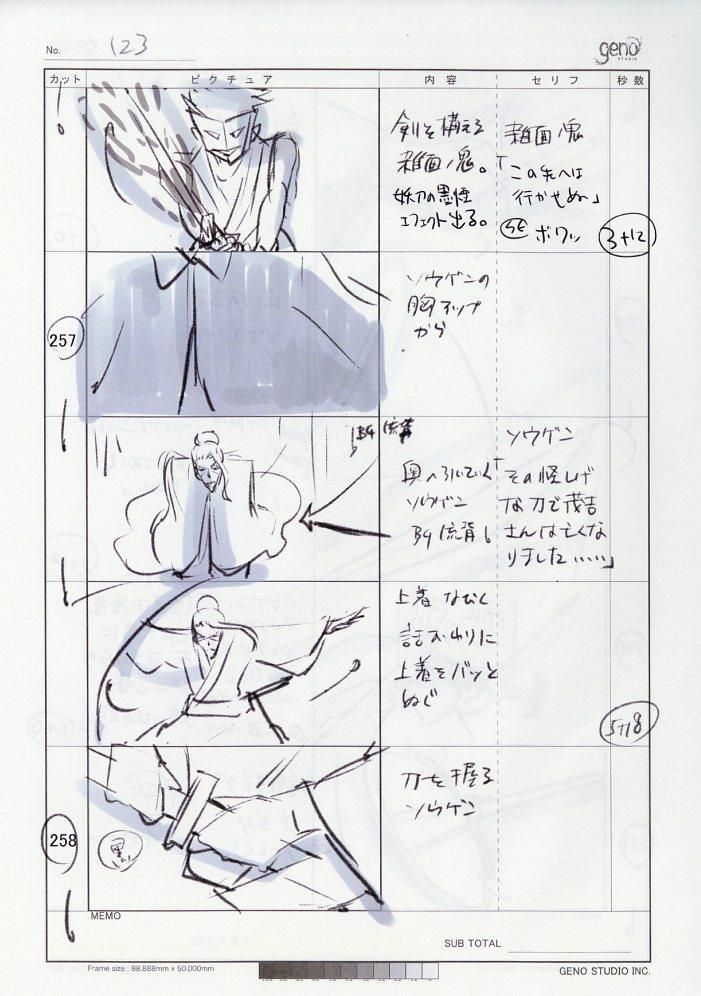 No. 123
geno
studio
カット ピクチュア 内容 セリフ 秒数
剣を構える
雑面ノ鬼。
妖刀の黒煙
エフェクト出る。
雑面ノ鬼
「この先へは
行かせぬ」
SE ボワッ
3+12
257
ソウゲンの
胸アップ
から
BG 流背
奥へ引いていく
ソウゲン
BG流背
ソウゲン
「その怪しげ
な刀で茂吉
さんは亡くな
りました……」
上着 なびく
話おわりに
上着をバッと
ぬぐ
5+18
258
黒い
刀を握る
ソウゲン
MEMO
SUB TOTAL
Frame size : 88.888mm x 50.000mm
GENO STUDIO INC.